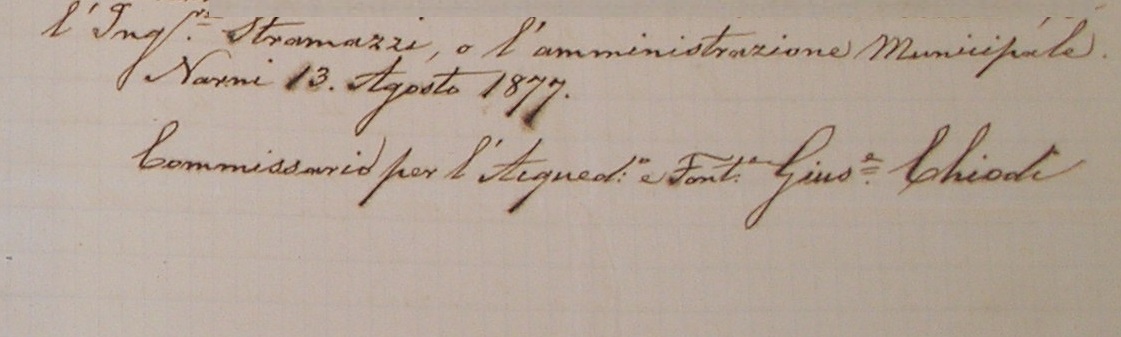 l'Ing.re Stramazzi, o l'amministrazione Municipale.
Narni 13. Agosto 1877.
Commissario per l'Acqued.o e Font.e Gius.e Chiodi